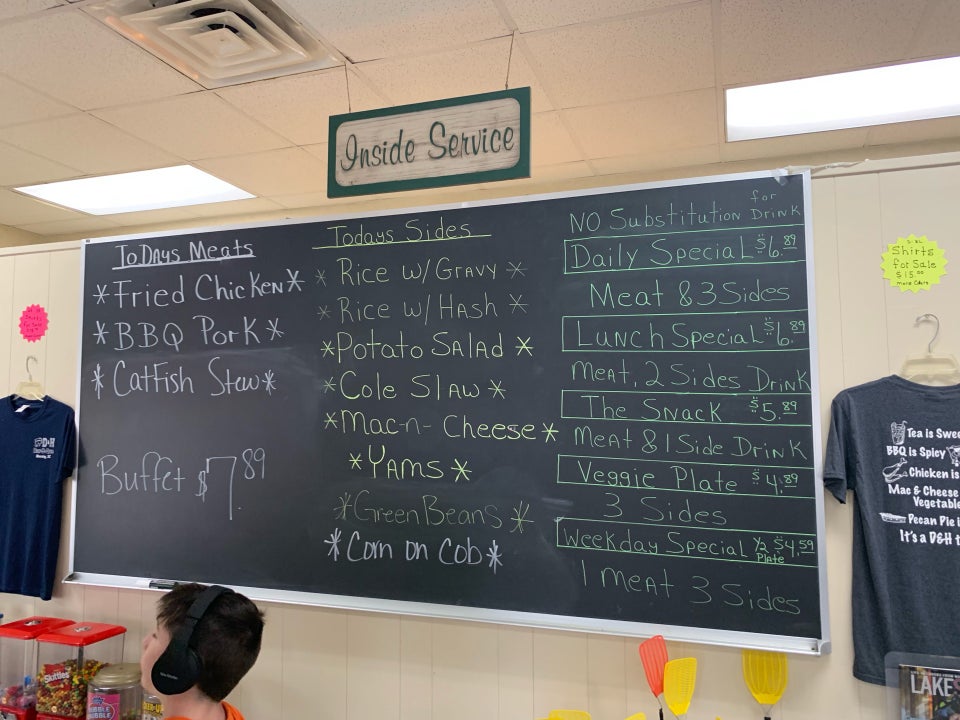 Inside Service
ToDAys Meats
*Fried Chicken*
*BBQ Pork*
*Catfish Stew*
Buffet $7.89
Todays Sides
* Rice w/Gravy *
* Rice w/Hash *
*Potato Salad *
*Cole Slaw *
*Mac-n-Cheese*
*Yams*
*Green Beans*
*Corn on Cob*
NO Substitution for Drink
Daily Special $6.89
Meat & 3 Sides
Lunch Special $6.89
Meat, 2 Sides Drink
The Snack $5.89
Meat & 1 Side Drink
Veggie Plate $4.89
3 Sides
Weekday Special 1/2 Plate $4.59
1 Meat 3 Sides
Shirts
for Sale
$15.00
D&H
Tea is Swee
BBQ is Spicy
Chicken is
Mac & Cheese
Vegetable
Pecan Pie i
It's a D&H t
Skittles
LAKE